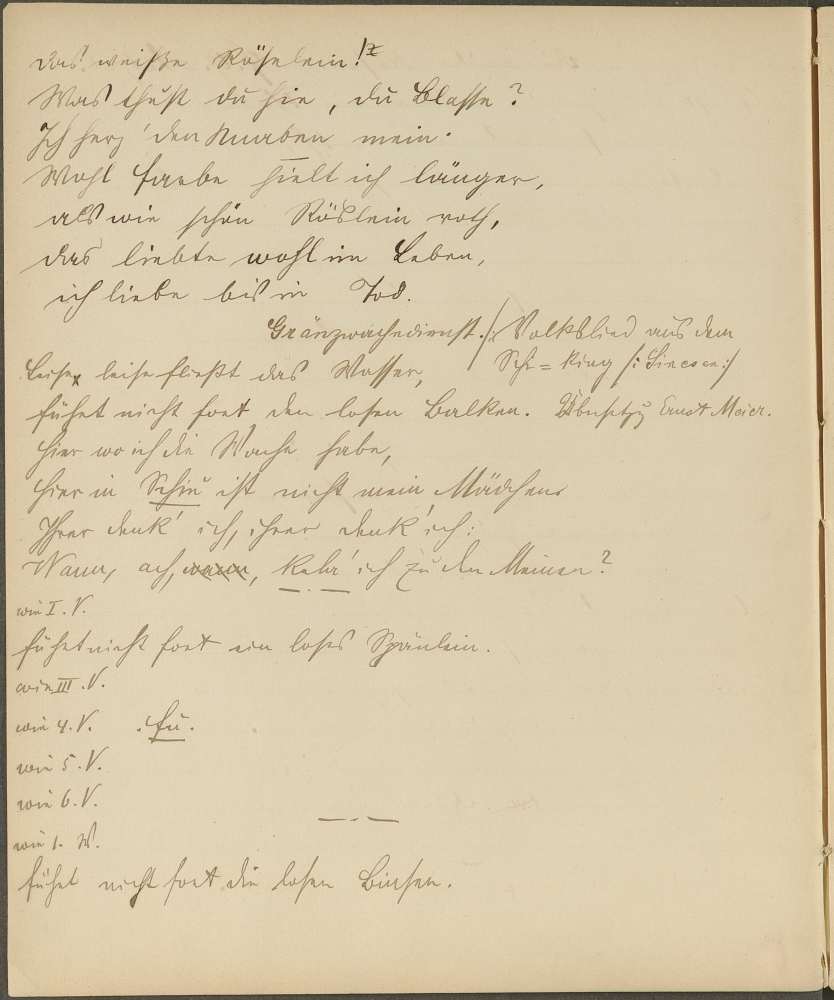 das weiße Röslein!
Was thust du hie, du Blasse?
Ich herz' den Knaben mein.
Wohl Farbe hielt ich länger,
als wie schön Röslein roth,
das liebte wohl im Leben,
ich liebe bis in Tod.
Gränzwachedienst. /: Volkslied aus dem
Schi=king /: Sinesen :/
Leise, leise fließt das Wasser,
führt nicht fort den losen Balken. Übersetzg Ernst Meier.
Hier wo ich die Wache habe,
hier in Schin ist nicht mein Mädchen
Ihrer denk' ich, ihrer denk' ich:
Wann, ach, wann, kehr' ich zu den Meinen?
wie I. V.
führt nicht fort ein loses Spänlein.
wie III. V.
wie 4. V. : Fu.
wie 5. V.
wie 6. V.
wie 1. W.
führt nicht fort die losen Binsen.